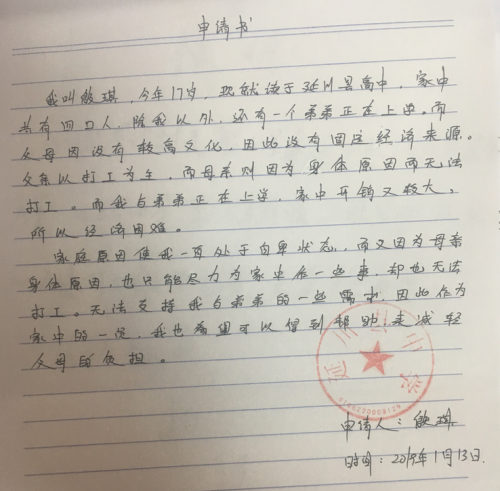 申请书
我叫殷琪，今年17岁，现就读于延川县高中，家中
共有四口人，除我以外，还有一个弟弟正在上学。而
父母因没有较高文化，因此没有固定经济来源。
父亲以打工为主，而母亲则因为身体原因而无法
打工。而我与弟弟正在上学，家中开销又较大，
所以经济困难。
家庭原因使我一直处于自卑状态，而又因为母亲
身体原因，也只能尽力为家中作一些事，却也无法
打工。无法支持我与弟弟的一些需求，因此作为
家中的一员，我也希望可以得到帮助，来减轻
父母的负担。
申请人：殷琪
时间：2019年1月13日.